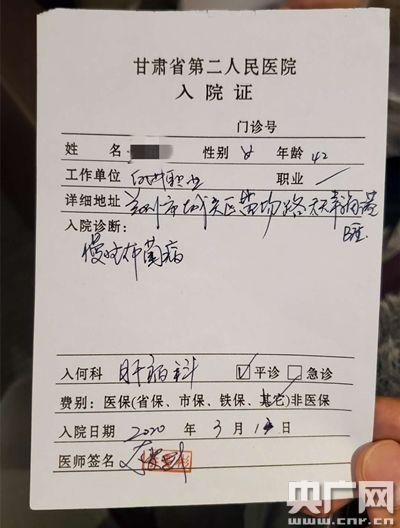 甘肃省第二人民医院
入院证
门诊号
姓名 性别 女 年龄 42
工作单位 自由职业 职业 /
详细地址 兰州市城关区盐场路天奉湖
入院诊断:
慢性布菌病
入何科 肝病科 ☑平诊 □急诊
费别:医保(省保、市保、铁保、其它)非医保
入院日期 2020 年 3 月 日
医师签名
央广网
www.cnr.cn